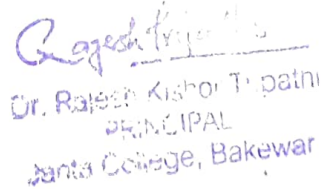 Rajesh
Dr. Rajesh Kishor Tripathi
PRINCIPAL
Janta College, Bakewar